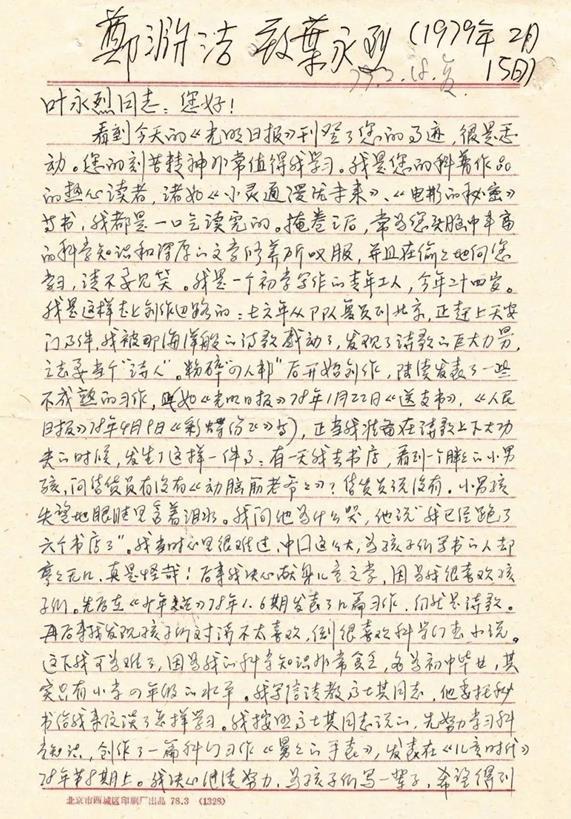 鄭渊洁致葉永烈(1979年2月
15日)
79.2.18.复
叶永烈同志：您好！
看到今天的《光明日报》刊登了您的事迹，很是感
动。您的刻苦精神非常值得我学习。我是您的科普作品
的热心读者，诸如《小灵通漫游未来》、《电影的秘密》
等书，我都是一口气读完的。掩卷之后，常为您头脑中丰富
的科学知识和深厚的文学修养所叹服，并且在偷偷地向您
学习，请不要见笑。我是一个初学写作的青年工人，今年二十四岁。
我是这样走上创作道路的：七六年从部队复员到北京，正赶上天安
门事件，我被那海洋般的诗歌感动了，发现了诗歌的巨大力量，
立志要当个“诗人”。粉碎“四人邦”后开始创作，陆续发表了一些
不成熟的习作，(如《光明日报》78年1月22日《送支书》，《人民
日报》78年9月9日《彩蝶纷飞》等)，正当我准备在诗歌上下大功
夫的时候，发生了这样一件事：有一天我去书店，看到一个胖胖的小男
孩，问售货员有没有《动脑筋爷爷》？售货员说没有。小男孩
失望地眼眶里含着泪水。我问他为什么哭，他说“我已经跑了
六个书店了”。我当时心里很难过，中国这么大，为孩子们写书的人却
寥寥无几，真是怪哉！后来我决心献身儿童文学，因为我很喜欢孩
子们。先后在《少年文艺》78年1.6期发表了几篇习作，仍然是诗歌。
再后来我发现孩子们对诗不太喜欢，倒很喜欢科学幻想小说。
这下我可为难了，因为我的科学知识非常贫乏，名为初中毕业，其
实只有小学四年级的水平。我写信请教高士其同志，他委托秘
书给我来信谈了怎样学习。我按照高士其同志说的，先努力学习科
学知识，创作了一篇科幻习作《黑黑的手表》，发表在《儿童时代》
78年第8期上。我决心继续努力，为孩子们写一辈子，希望得到
北京市西城区印刷厂出品 78.3 (1328)